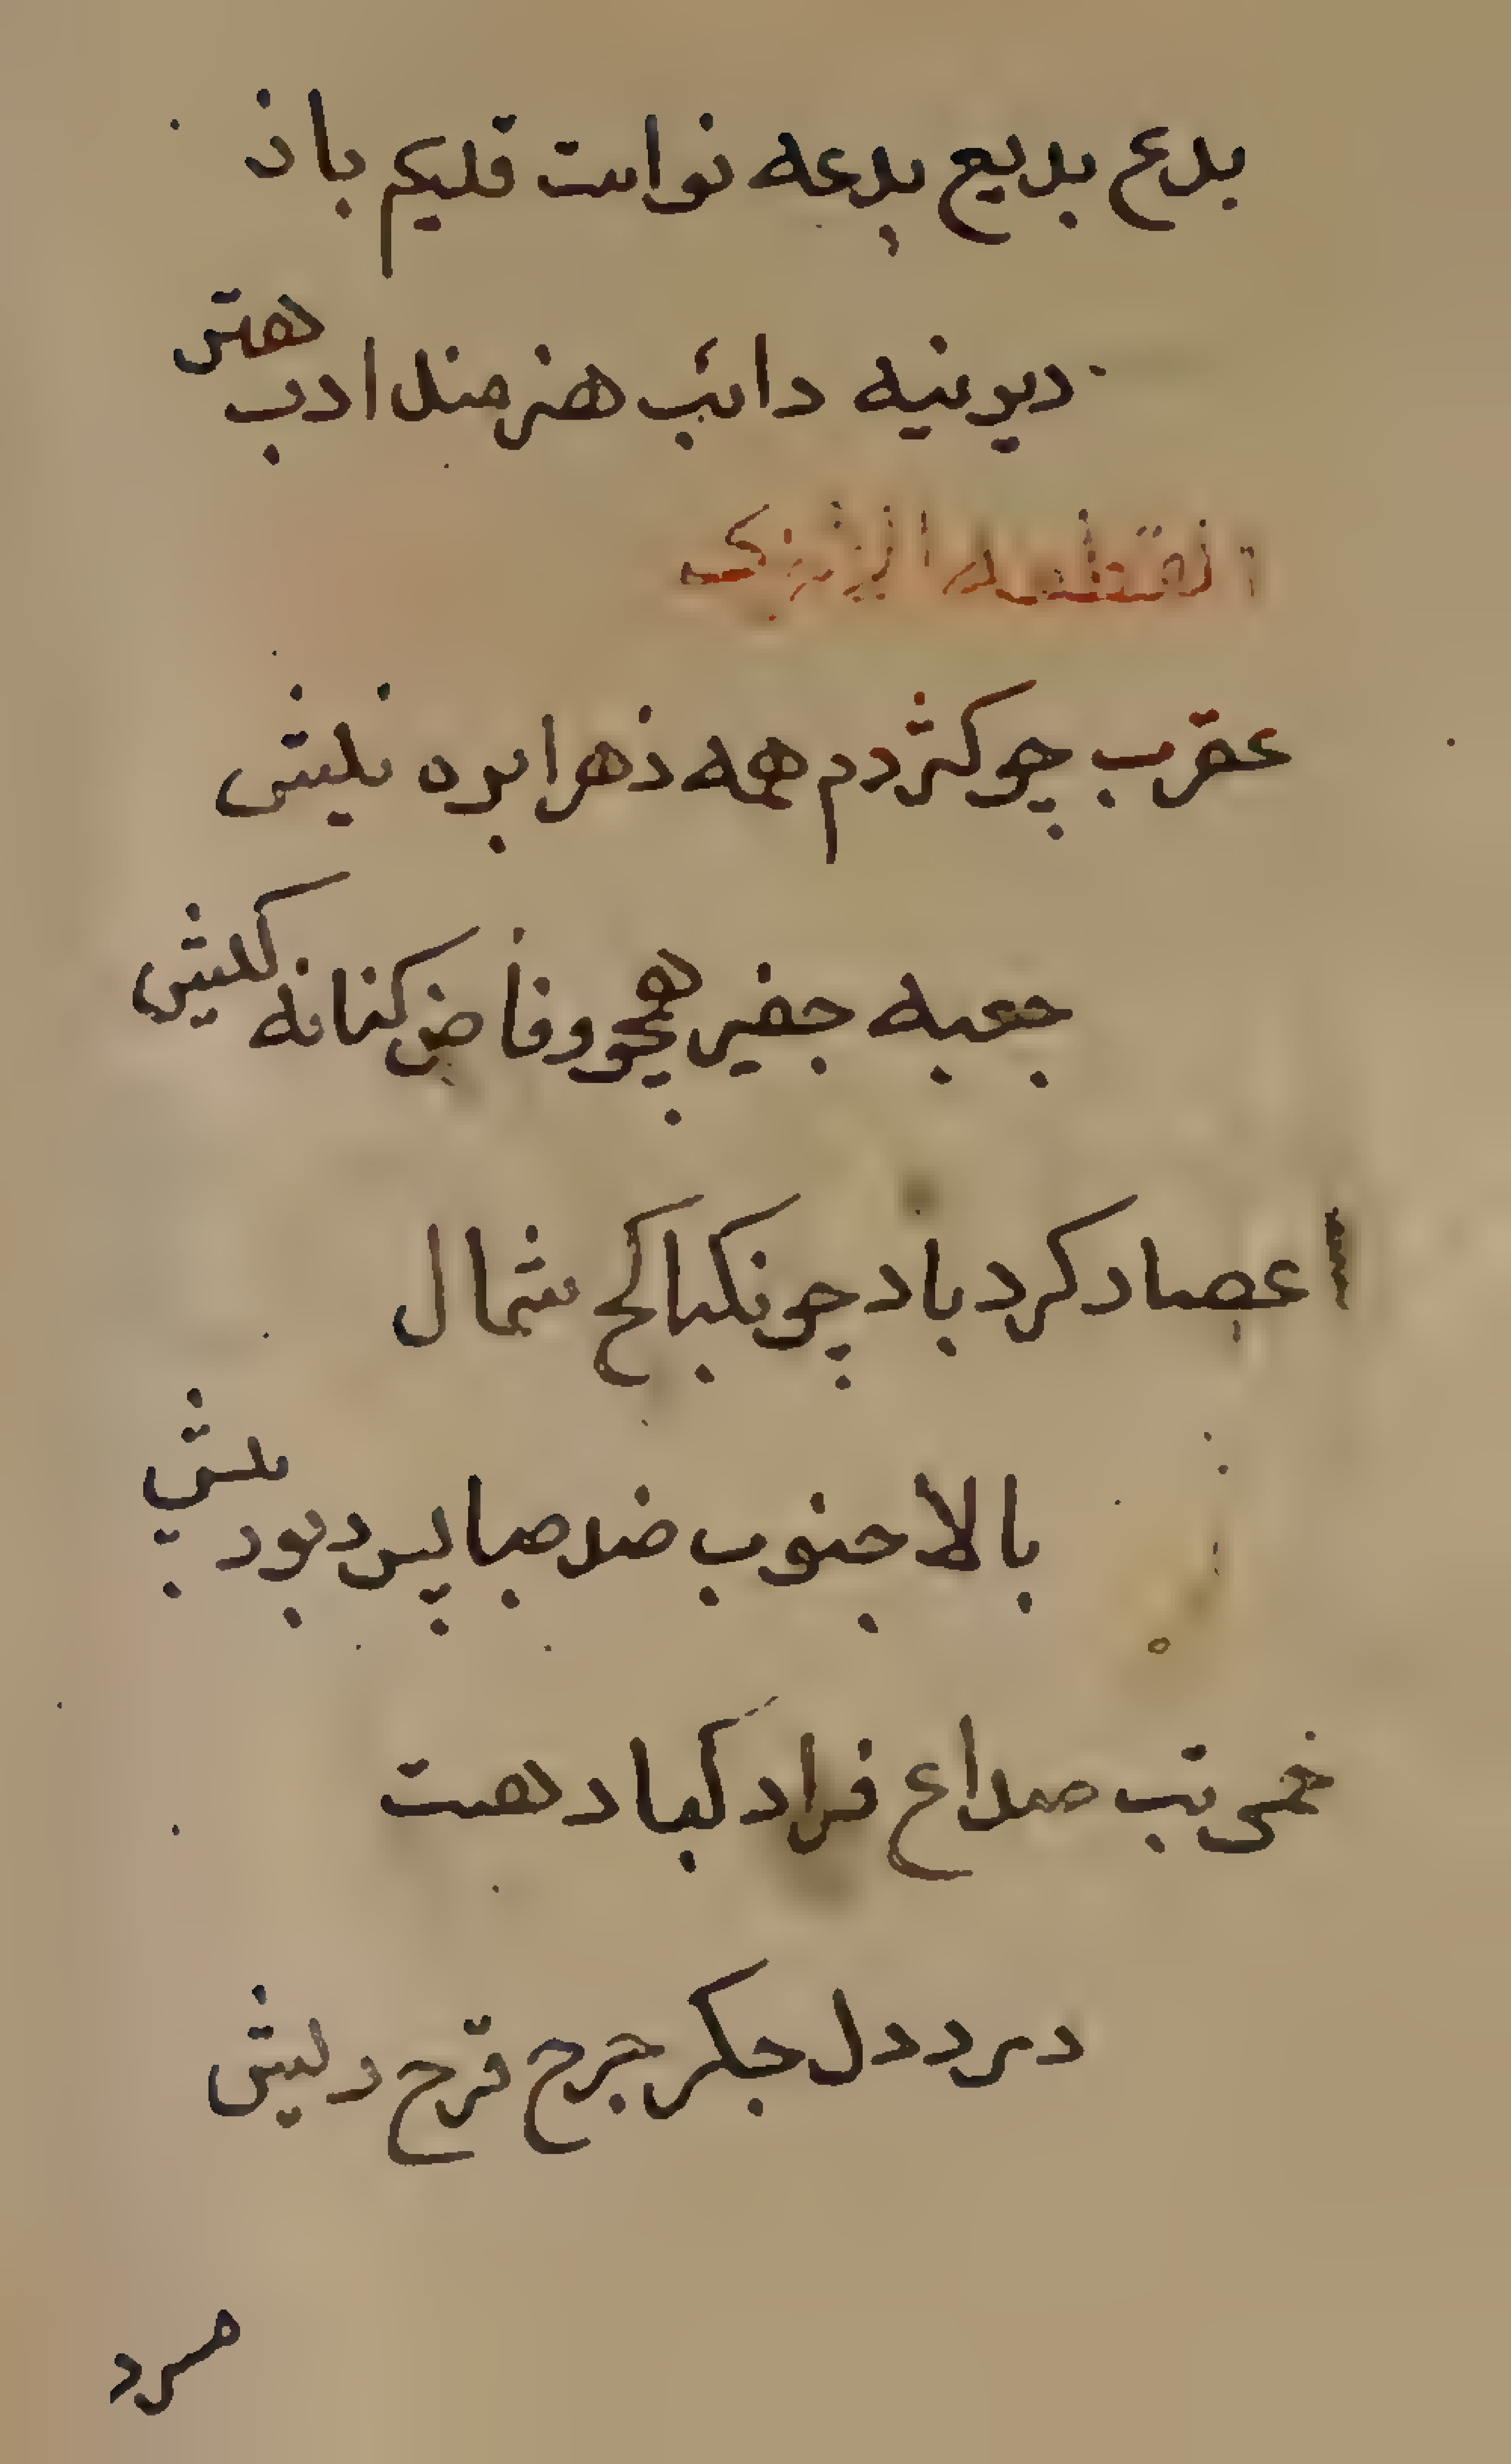 بدع بديع بدعه نواست قليم باذ
ديرينيه دائب هنرمند ادب هتر
القطعة الاخرى
عقرب چو كژدم همه ذهرا بره نليش
جعبه جفير همچو وفاض كنانه كليش
اعصار كرد باد چو نكبا لخ شمال
بالا جنوب ضد صبا پس دبور پيش
خمى تب صداع فراد كباد هست
درد دل جكر جرح قرح ريش
مرد